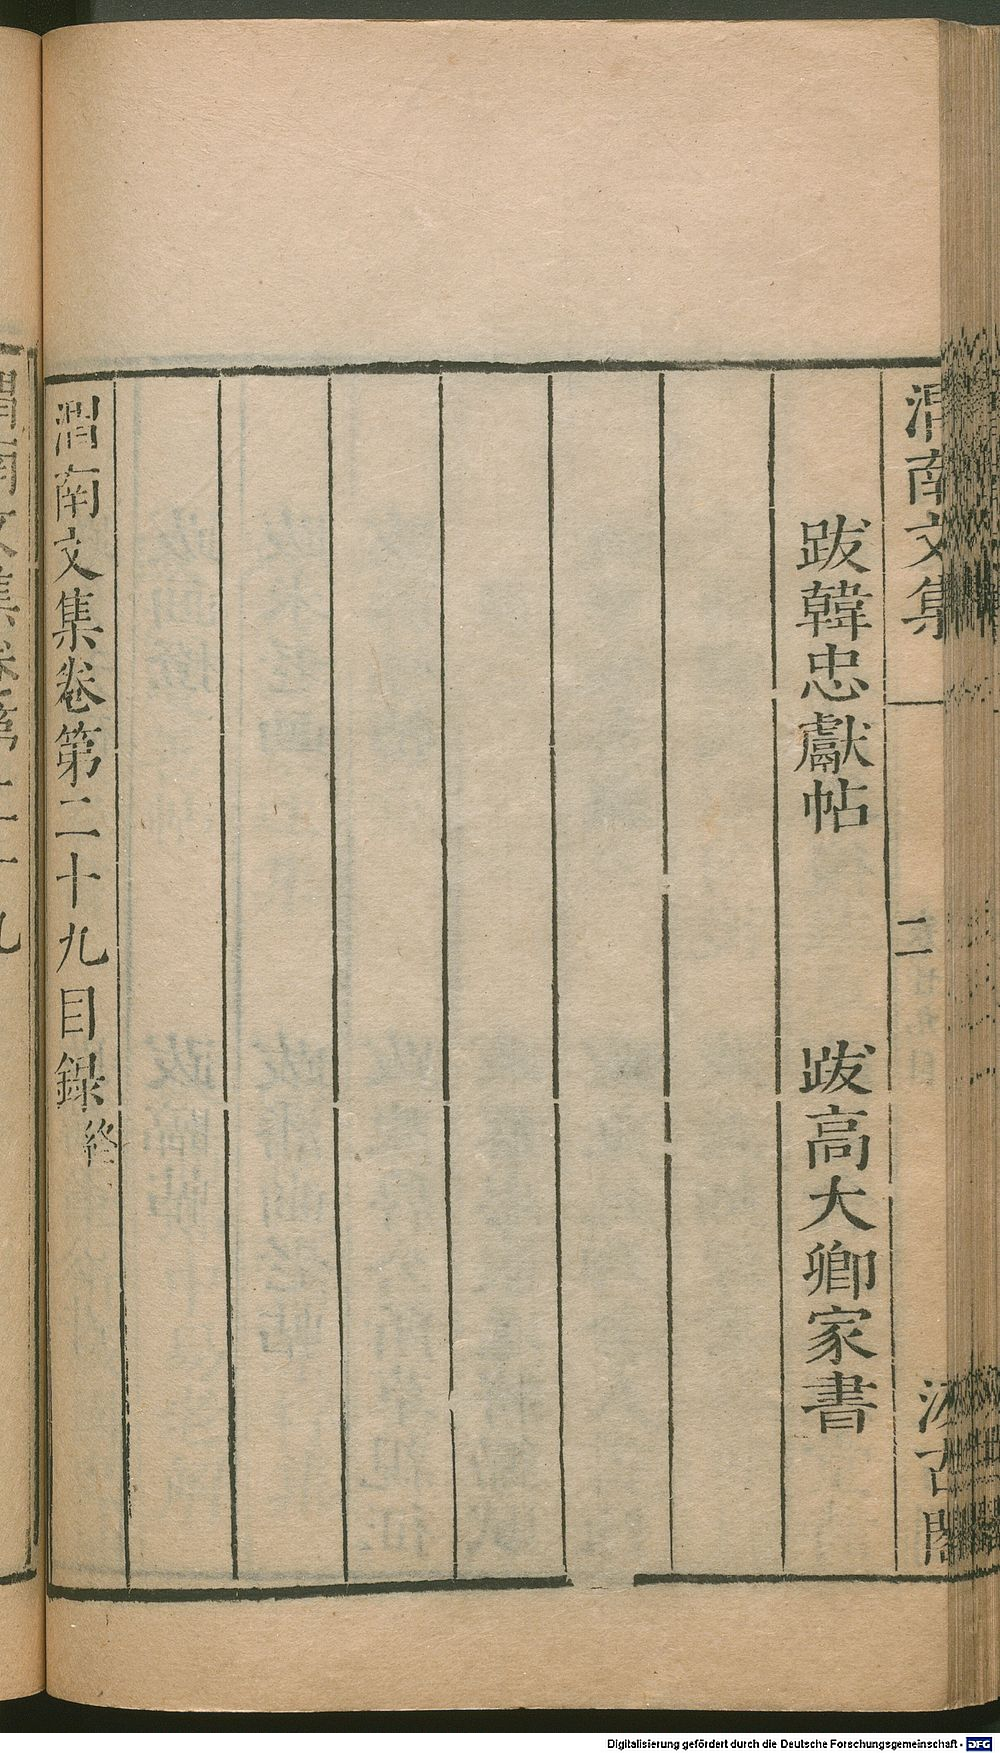 渭南文集
二
汲古閣
跋韓忠獻帖　跋高大卿家書
渭南文集卷第二十九目錄終
渭南文集卷第二十九
Digitalisierung gefördert durch die Deutsche Forschungsgemeinschaft - DFG